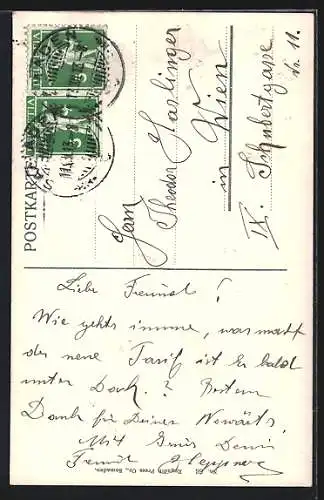 POSTKARTE
HELVETIA
5
HELVETIA
5
Herrn
Theodor Haslinger
in Wien
IX. Schubertgasse
Nr. 11.
Liebe Freund!
Wie gehts immer, was macht
der neue Tarif ist Er bald
unter Dach.?
Dank für Deine
Mit Gruss Dein
Freund
Press Co.,